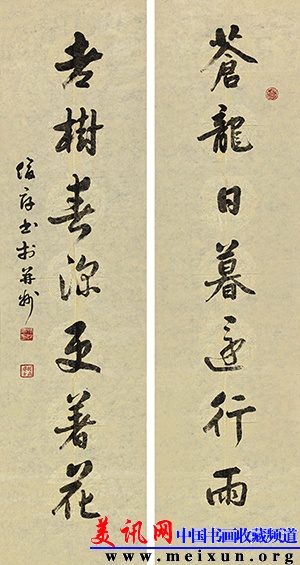 蒼龍日暮還行雨
老樹春深更著花
书於并州
美讯网 中国书画收藏频道
www.meixun.org